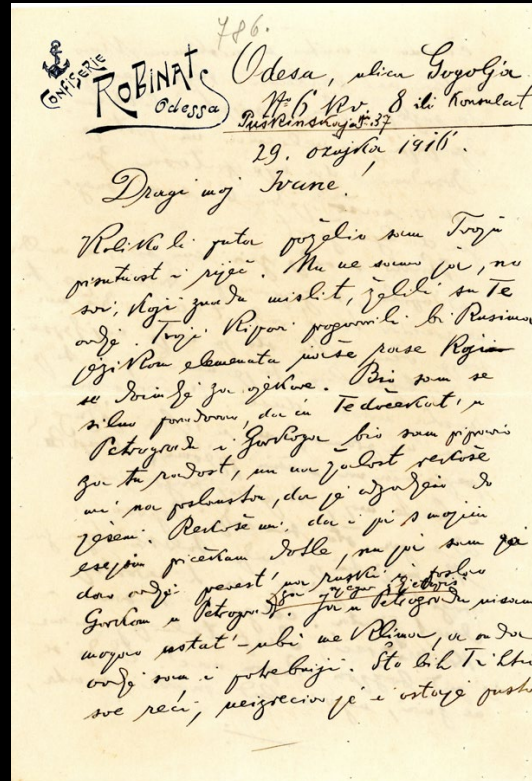 786.
CONFISERIE
ROBINAT
Odessa
Odesa, ulica Gogolja
№ 6 kv. 8 ili Konsulat
Puškinskaja № 37
29. ožujka 1916.
Dragi moj Ivane!
Koliko li puta poželio sam Tvoju
prisutnost i riječ. Ma ne samo ja, no
svi, koji znadu mislit, željeli su Te
ovdje. Tvoji kipovi progovorili bi Rusima
jezikom elementa naše rase
se za vjekove. Bio sam se
silno, da ću Te dočekat' u
Petrogradu i Gorkoga bio sam pripravio
za tu radost, no na žalost rekoše
mi na poslanstvu, da je do
jeseni. Rekoše mi, da i ja s mojim
esejom pričekam dotle, no ja sam
dao ovdje prevest' na ruski i poslao
Gorkom u Petrograd. Ja u Petrogradu nisam
mogao ostat' - ubi me klima, a onda
ovdje sam i potrebniji. Što bih Ti htio
sve reći, neizrecivo je i ostaje